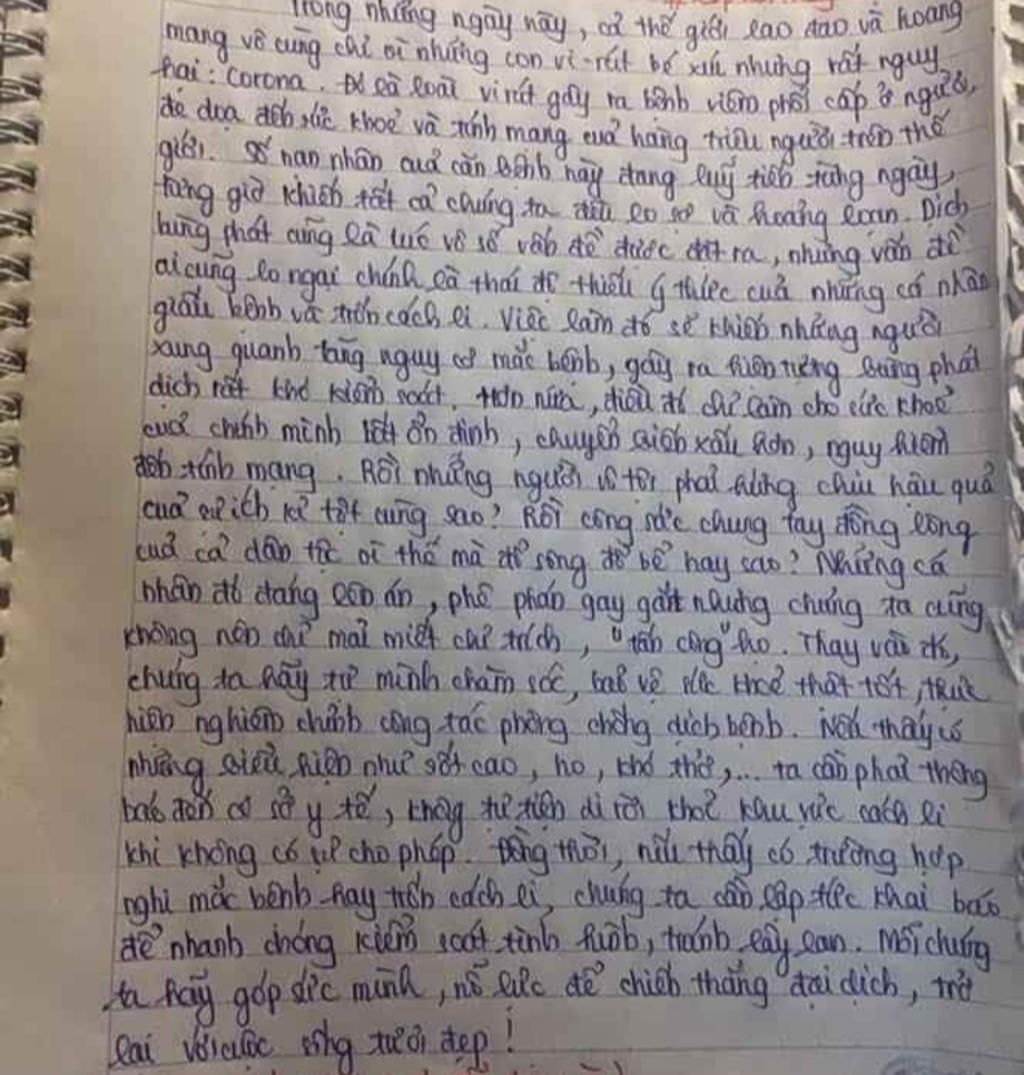 Trong những ngày này, cả thế giới lao đao và hoang
mang vô cùng chỉ vì những con vi-rút bé xíu nhưng rất nguy
hại: Corona. Đó là loài virút gây ra bệnh viêm phổi cấp ở người,
đe dọa đến sức khoẻ và tính mạng của hàng triệu người trên thế
giới. Số nạn nhân của căn bệnh này đang luỹ tiến từng ngày,
từng giờ khiến tất cả chúng ta đều lo sợ và hoảng loạn. Dịch
bùng phát cũng là lúc vô số vấn đề được đặt ra, nhưng vấn đề
ai cũng lo ngại chính là thái độ thiếu ý thức của những cá nhân
giấu bệnh và trốn cách li. Việc làm đó sẽ khiến những người
xung quanh tăng nguy cơ mắc bệnh, gây ra hiện tượng bùng phát
dịch rất khó kiểm soát. Hơn nữa, điều đó chỉ làm cho sức khoẻ
của chính mình bất ổn định, chuyển biến xấu hơn, nguy hiểm
đến tính mạng. Rồi những người vô tội phải hứng chịu hậu quả
của sự ích kỉ tột cùng sao? Rồi công sức chung tay đồng lòng
của cả dân tộc vì thế mà đổ sông đổ bể hay sao? Những cá
nhân đó đáng lên án, phê phán gay gắt nhưng chúng ta cũng
không nên chỉ mải miết chỉ trích, "tấn công" họ. Thay vào đó,
chúng ta hãy tự mình chăm sóc, bảo vệ sức khoẻ thật tốt, thực
hiện nghiêm chỉnh công tác phòng chống dịch bệnh. Nếu thấy có
những biểu hiện như sốt cao, ho, khó thở,... ta cần phải thông
báo đến cơ sở y tế, không tự tiện di rời khỏi khu vực cách li
khi không có sự cho phép. Đồng thời, nếu thấy có trường hợp
nghi mắc bệnh hay trốn cách li, chúng ta cần lập tức khai báo
để nhanh chóng kiểm soát tình hình, tránh lây lan. Mỗi chúng
ta hãy góp sức mình, nỗ lực để chiến thắng đại dịch, trở
lại với cuộc sống tươi đẹp!